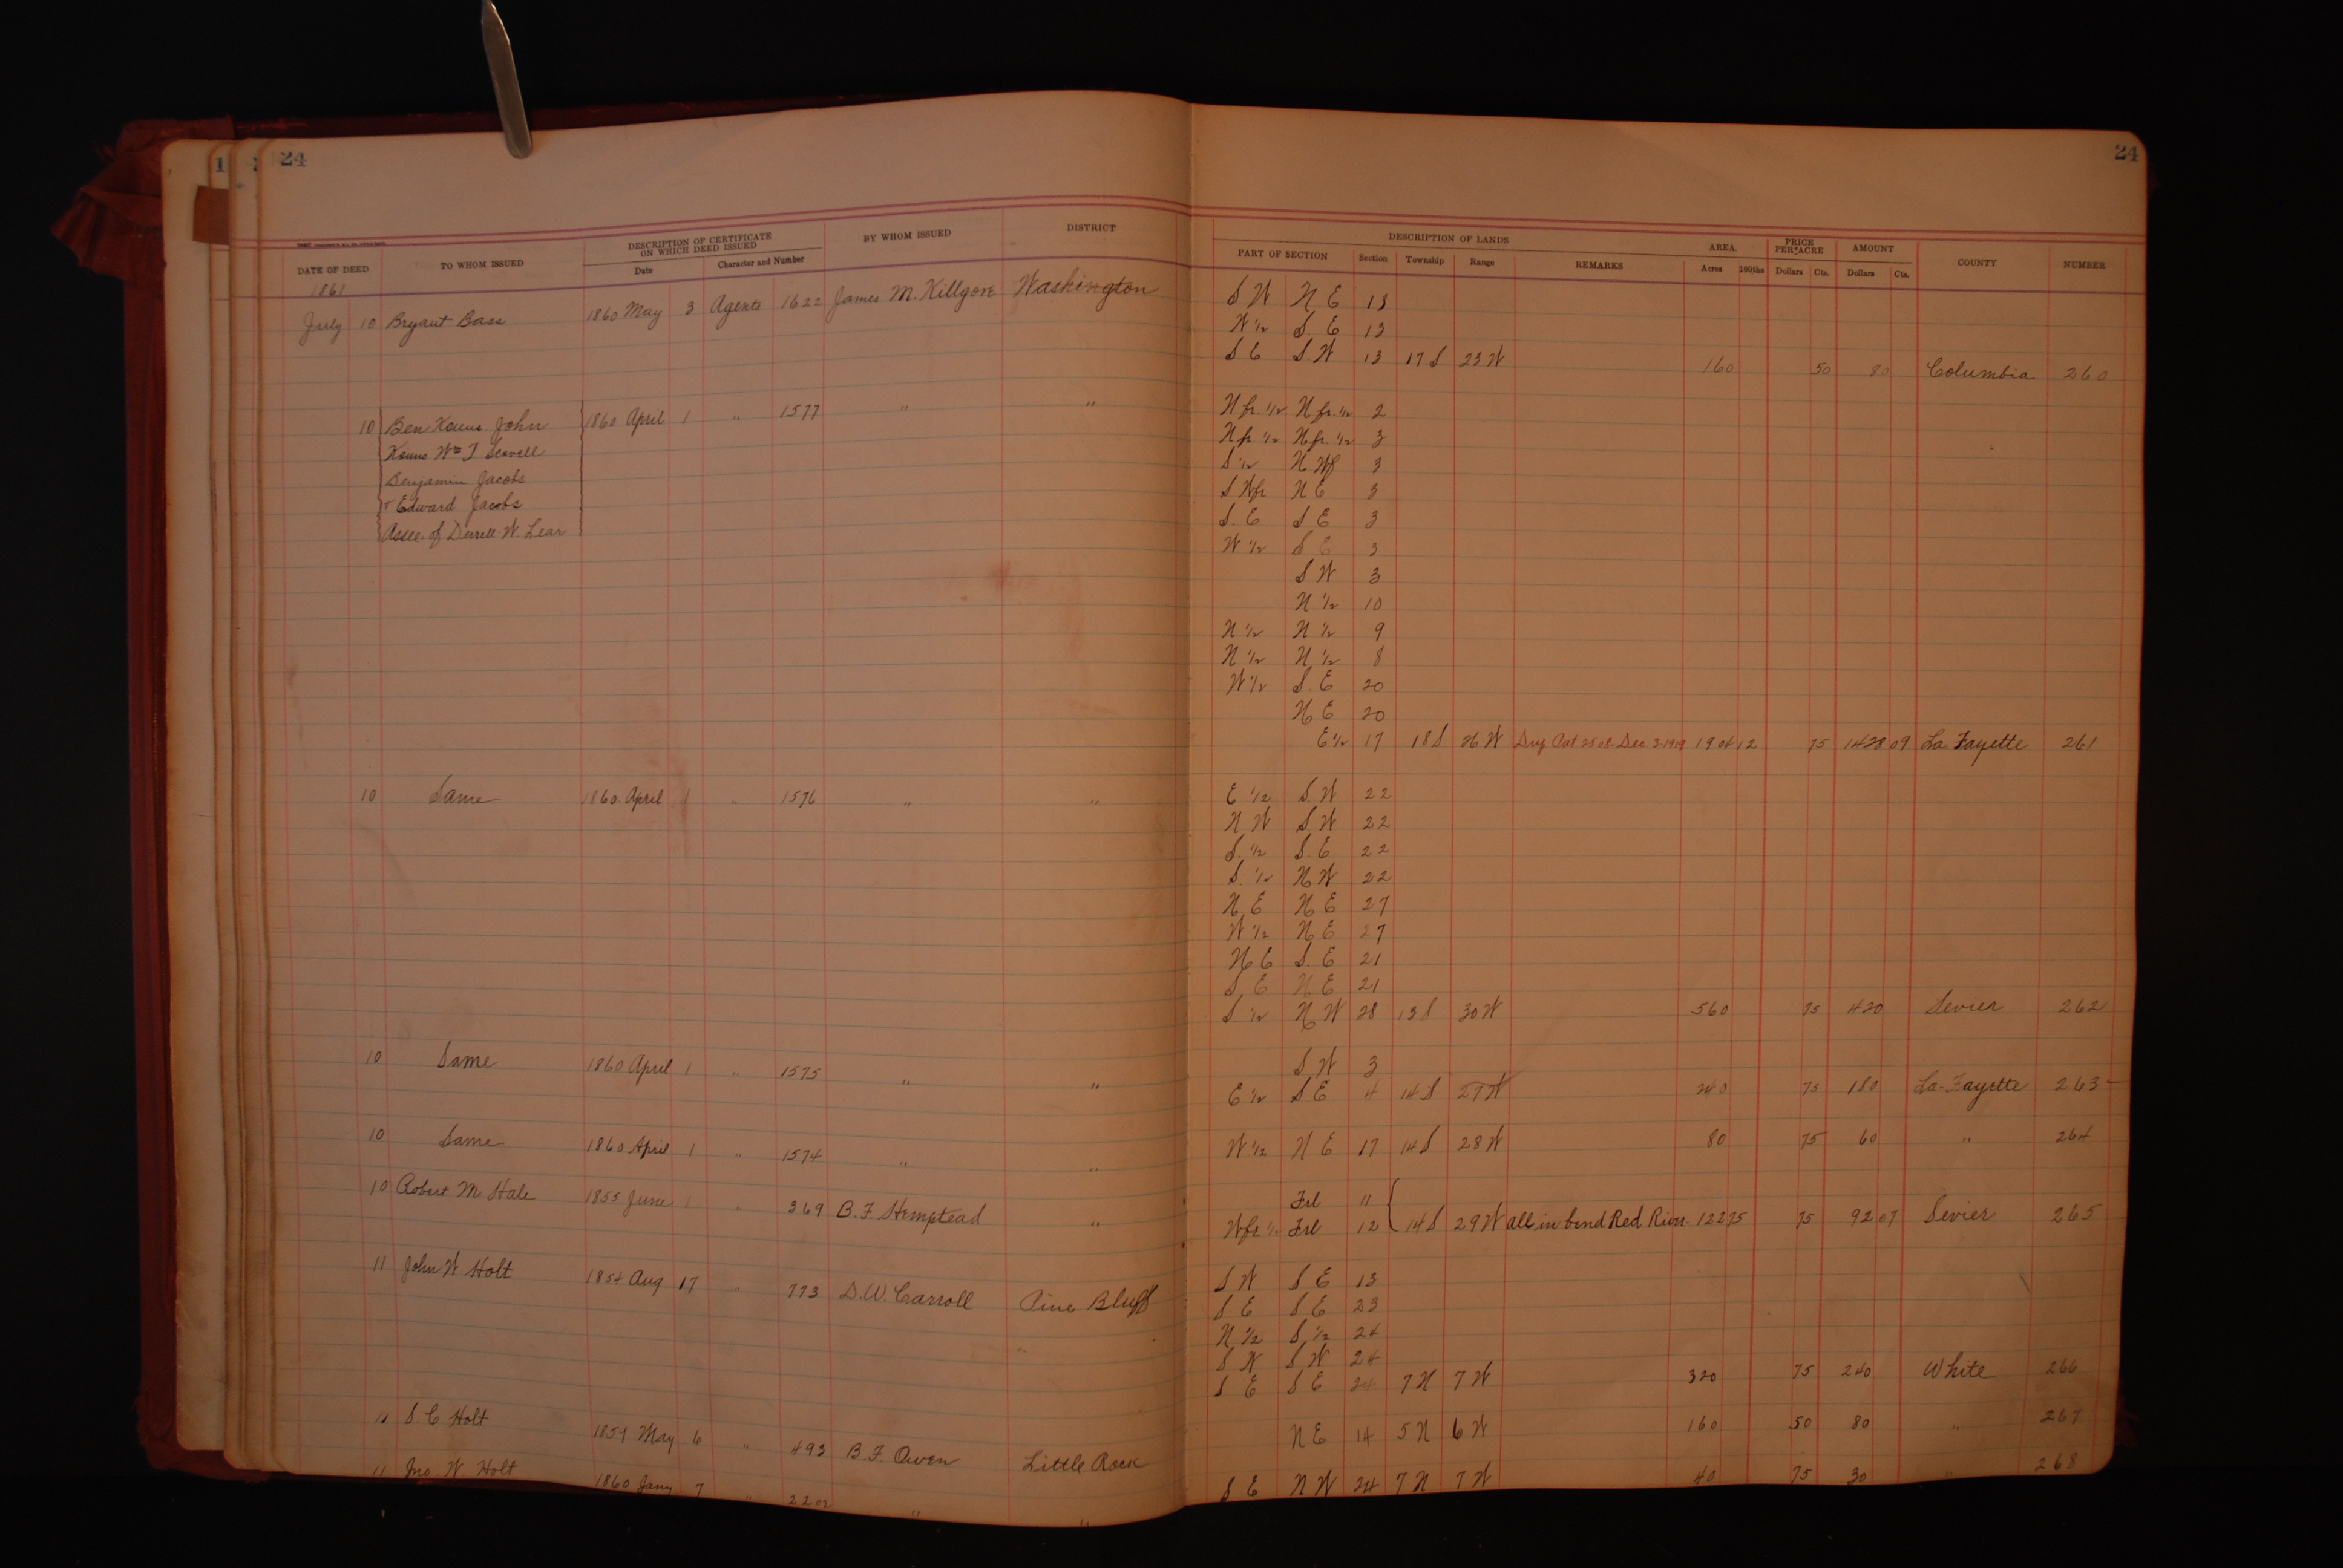 24
24
DATE OF DEED TO WHOM ISSUED DESCRIPTION OF CERTIFICATE ON WHICH DEED ISSUED Date Character and Number BY WHOM ISSUED DISTRICT
DESCRIPTION OF LANDS PART OF SECTION Section Township Range REMARKS AREA Acres 100ths PRICE PER ACRE Dollars Cts. AMOUNT Dollars Cts. COUNTY NUMBER
1861
July 10 Bryant Bass 1860 May 3 Agents 1622 James M. Killgore Washington S W N E 13
W ½ S. E 13
S E S W 13 17 S 23 W 160 50 80 Columbia 260
10 Ben Kouns John 1860 April 1 " 1577 " " N fr. ½ N fr. ½ 2
Kouns Wm T Scovell N fr ½ N fr. ½ 3
Benjamin Jacobs S ½ N W 3
& Edward Jacobs S W fr N E 3
Assee. of Derrell W. Lear S. E S E 3
W ½ S E 3
S W 3
N ½ 10
N ½ N ½ 9
N ½ N ½ 8
W ½ S. E 20
N E 20
E ½ 17 18 S 26 W Dec 3-1919 1904 12 75 1428 09 La Fayette 261
10 Same 1860 April 1 " 1576 " " E ½ S. W 22
N W S W 22
S. ½ S. E 22
S. ½ N W 22
N E N E 27
W ½ N E 27
N E S. E 21
S E N E 21
S ½ N W 28 13 S 30 W 560 75 420 Sevier 262
10 Same 1860 April 1 " 1575 " " S W 3
E ½ S E 4 14 S 27 W 240 75 180 La Fayette 263
10 Same 1860 April 1 " 1574 " " W ½ N E 17 14 S 28 W 80 75 60 " 264
10 Robert M Hale 1855 June 1 " 369 B. F. Hemptead " Frl 11
W fr ½ Frl 12 14 S 29 W all in bend Red River 122 75 75 92 07 Sevier 265
11 John W Holt 1854 Aug 17 " 773 D. W. Carroll Pine Bluff S W S E 13
S E S E 23
N ½ S ½ 24
S W S W 24
S E S E 24 7 N 7 W 320 75 240 White 266
11 S. C. Holt 1859 May 6 " 493 B. F. Owen Little Rock N E 14 5 N 6 W 160 50 80 " 267
11 Jno. W. Holt 1860 Jany 7 " 2202 " " S E N W 24 7 N 7 W 40 75 30 " 268